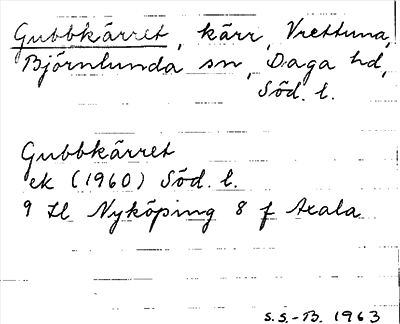 Gubbkärret, kärr, Vrettuna,
Björnlunda sn, Daga hd,
Söd. l.
Gubbkärret
ek (1960) Söd. l.
9 H Nyköping 8 f Axala
S.S.-B. 1963